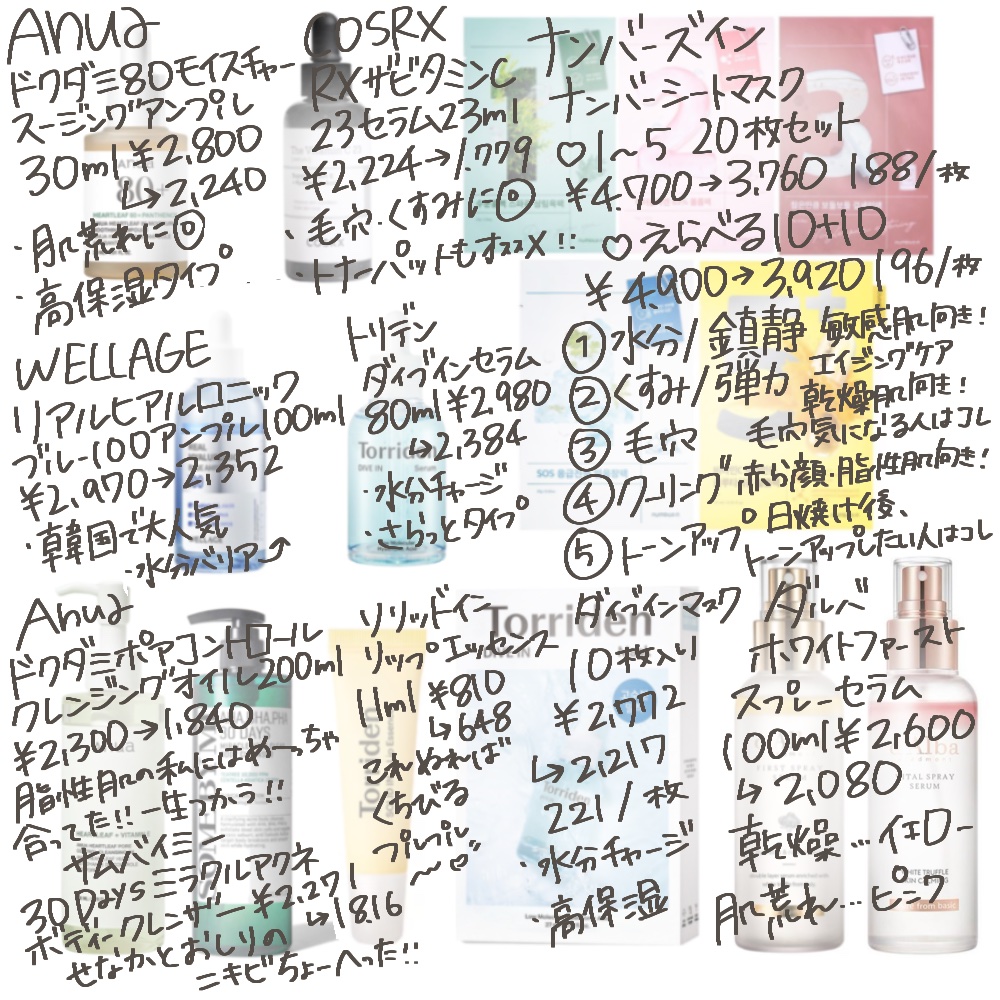 Anua
ドクダミ80モイスチャー
スージングアンプル
30ml ¥2,800
↳2,240
・肌荒れに◎
・高保湿タイプ
COSRX
RXザビタミンC
23セラム23ml
¥2,224→1,779
・毛穴・くすみに◎
・トナーパットもオススメ!!
ナンバーズイン
ナンバーシートマスク
♡1~5 20枚セット
¥4,700→3,760 188/枚
♡えらべる10+10
¥4,900→3,920 196/枚
①水分/鎮静 敏感肌向き!
②くすみ/弾力 エイジングケア
乾燥肌向き!
③毛穴 毛穴気になる人はコレ
④クーリング 赤ら顔・脂性肌向き!
日焼け後、
⑤トーンアップ トーンアップしたい人はコレ
WELLAGE
リアルヒアルロニック
ブルー100アンプル100ml
¥2,970→2,352
・韓国で大人気
・水分バリアー⤴
トリデン
ダイブインセラム
80ml ¥2,980
↳2,384
・水分チャージ
・さらっとタイプ
Torriden
DIVE IN Serum
Anua
ドクダミポアコントロール
クレンジングオイル200ml
¥2,300→1,840
脂性肌の私にはめーっちゃ
合ってた!!一生つかう!!
サムバイミー
30Daysミラクルアクネ
ボディークレンザー ¥2,271
↳1816
せなかとおしりの
ニキビちょーへった!!
ソリッドイン
リップエッセンス
11ml ¥810
↳648
これぬれば
くちびる
プルプル
~♡
Torriden
DIVE IN
ダイブインマスク
10枚入り
¥2,772
↳2,217
221/枚
・水分チャージ
・高保湿
ダルバ
ホワイトファースト
スプレーセラム
100ml ¥2,600
↳2,080
乾燥…イエロー
肌荒れ…ピンク
FIRST SPRAY
VITAL SPRAY
SERUM